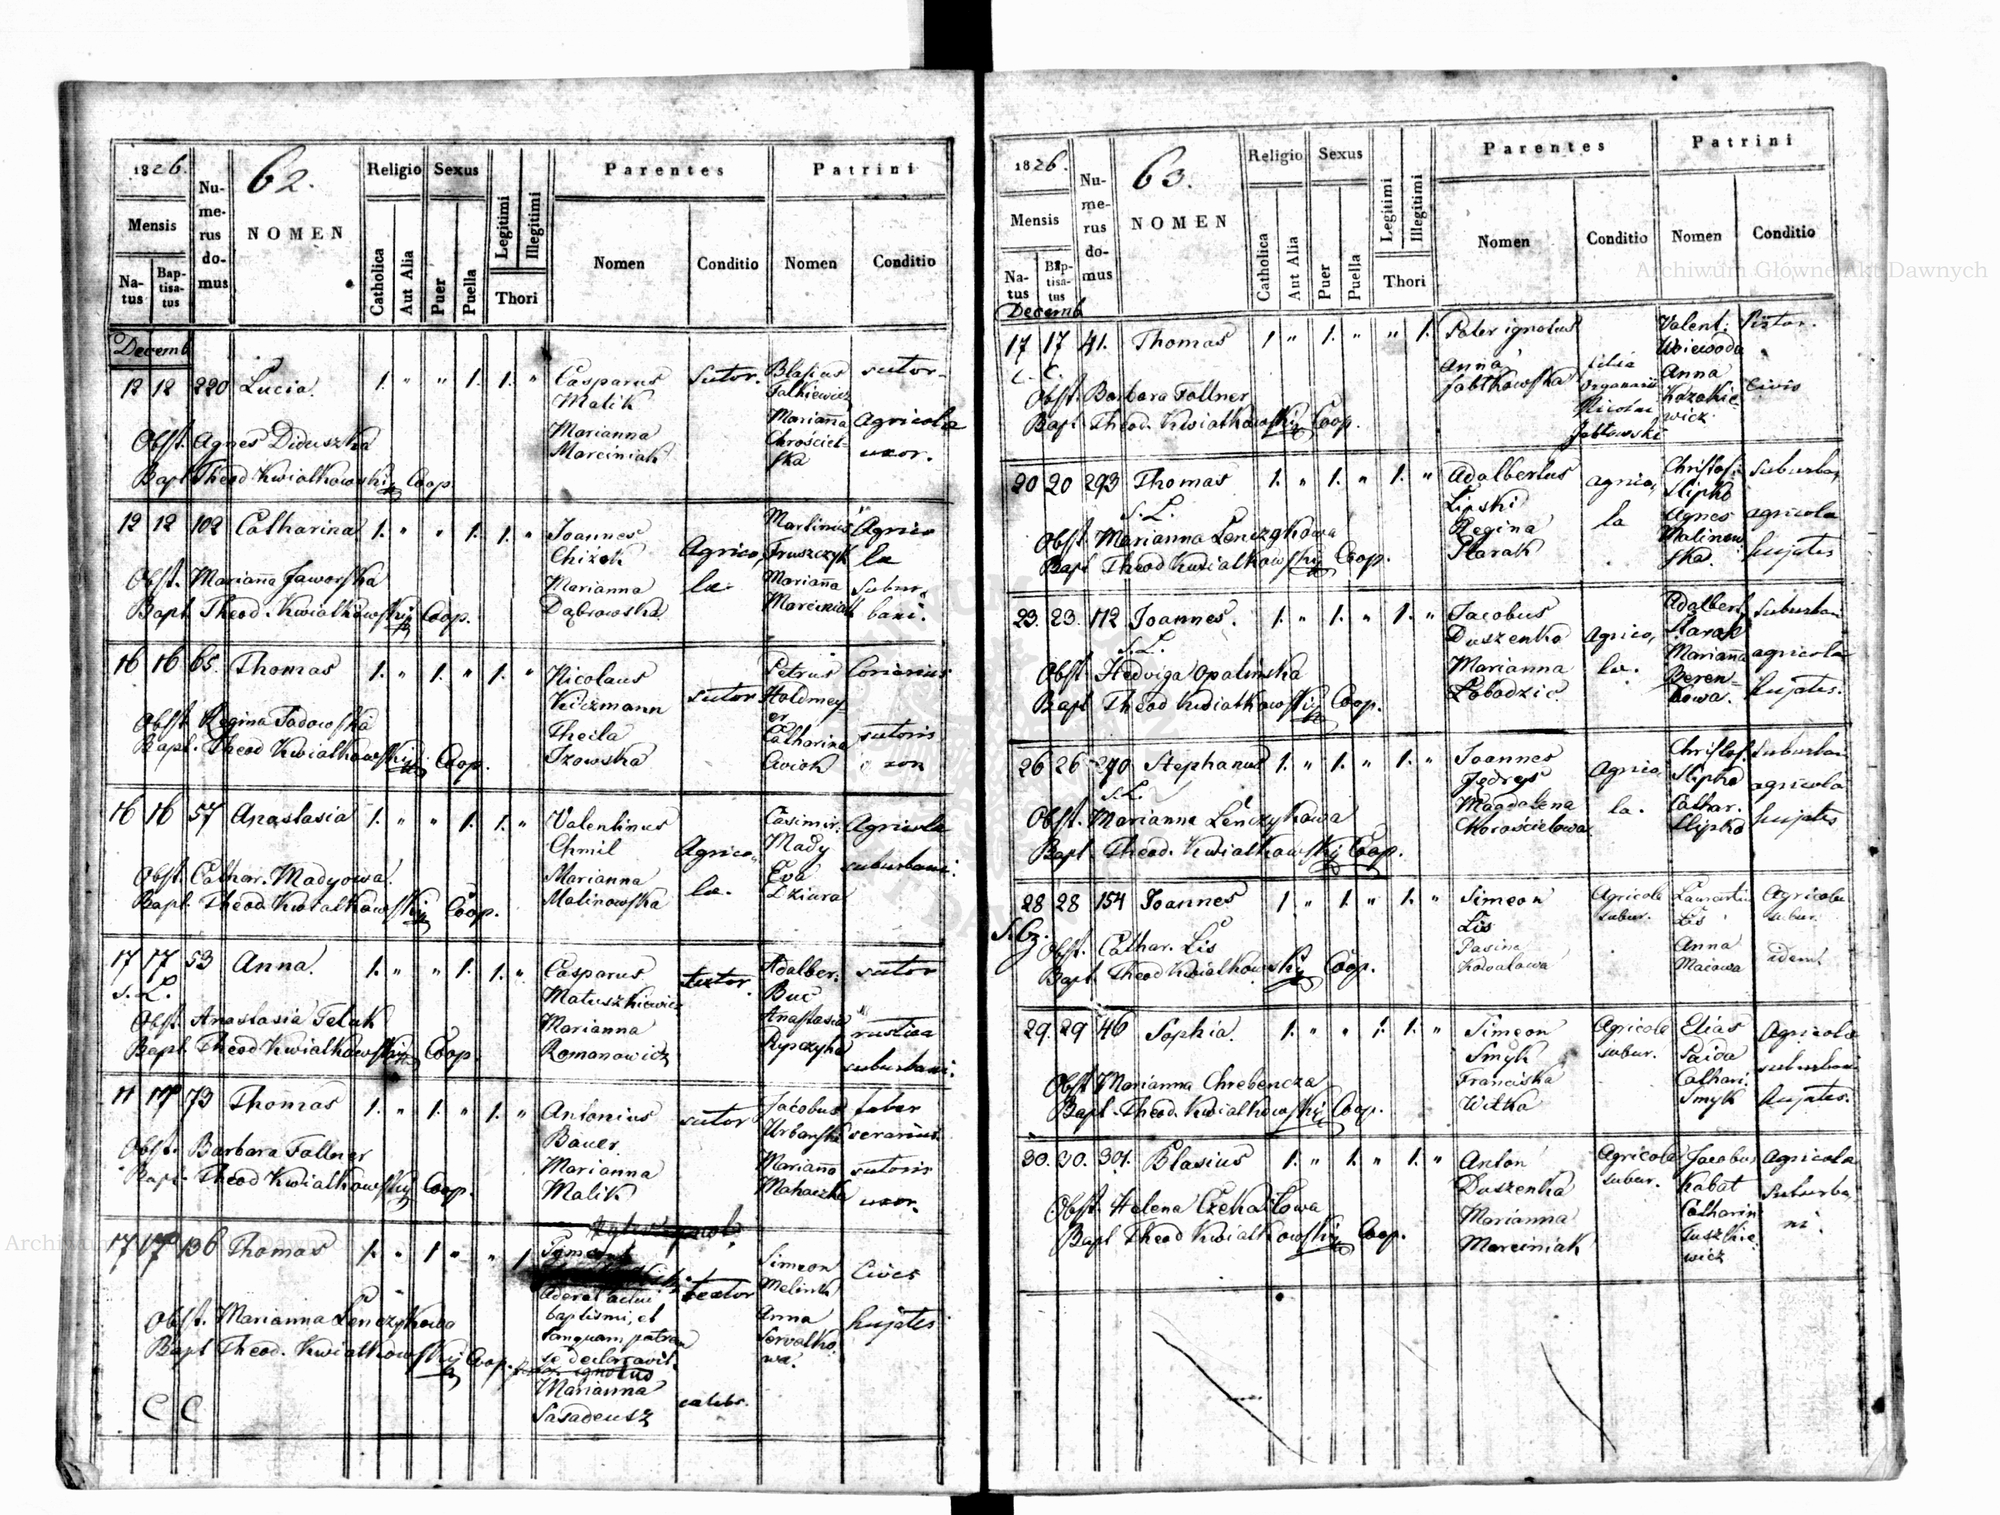 1826.
62.
Religio Sexus Parentes Patrini
Numerus domus
NOMEN
Mensis
Natus Baptisatus
Catholica Aut Alia Puer Puella Legitimi Illegitimi Thori
Nomen Conditio Nomen Conditio
Decemb
12 12 220 Lucia. 1. " " 1. 1. " Casparus Malik sutor. Blasius Falkiewicz sutor
Marianna Marciniak Marianna Chrościelska Agricola uxor.
Obst. Agnes Diduszka
Bapt Theod Kwiatkowski Coop.
12 12 102 Catharina 1. " " 1. 1. " Joannes Chiżek Agricola Martinus Fruszczyk Agricola
Marianna Dąbrowska Marianna Marciniak suburbani.
Obst. Marianna Jaworska
Bapt. Theod. Kwiatkowski Coop.
16 16 65. Thomas 1. " 1. " 1. " Nicolaus Kiczmann sutor Petrus Haldmeyer Coriarius
Thecla Izowska Catharina Cwiok sutoris uxor
Obst. Regina Sadowska
Bapt. Theod Kwiatkowski Coop.
16 16 57 Anastasia 1. " " 1. 1. " Valentinus Chmil Agricola. Casimir. Mady Agricola
Marianna Malinowska Eva Dziura suburbani.
Obst. Cathar. Madyowa
Bapt. Theod Kwiatkowski Coop.
17 17 53 Anna. 1. " " 1. 1. " Casparus Matuszkiewicz sutor. Adalber. Buc sutor
s. L.
Marianna Romanowicz Anastasia Rypczyha rustica suburbani.
Obst. Anastasia Feluk
Bapt. Theod Kwiatkowski Coop.
17 17 73 Thomas 1. " 1. " 1. " Antonius Bauer sutor Jacobus Urbański faber serarius.
Marianna Malik Marianna Mahaczka sutoris uxor.
Obst. Barbara Fallner
Bapt. Theod Kwiatkowski Coop.
17 17 136 Thomas 1. " 1 " " 1 textor Simeon Melink Cives
Aderat actui
baptismi, et
tanquam patrem
se declaravit.
ignotus
Marianna Sasadeusz caelebs. Anna Serwatkowa. hujates
Obst. Marianna Lenczykowa
Bapt Theod. Kwiatkowski Coop.
C C
1826.
63.
Religio Sexus Parentes Patrini
Numerus domus
NOMEN
Mensis
Natus Baptisatus
Catholica Aut Alia Puer Puella Legitimi Illegitimi Thori
Nomen Conditio Nomen Conditio
Decemb
17 17 41. Thomas 1 " 1. " " 1. Pater ignotus Valent. Woiewoda Pistor.
C. C.
Anna Jabłkowska filia Organarii Nicolai Jabłowski Anna Kozakiewicz civis
Obst. Barbara Fallner
Bapt Theod. Kwiatkowski Coop.
20 20 293 Thomas 1. " 1. " 1. " Adalbertus Lipski agricola Christof. Slipko suburban
s. L.
Regina Starak Agnes Malinowska. agricola hujates
Obst. Marianna Lenczykowa
Bapt Theod Kwiatkowski Coop.
23. 23. 112 Joannes. 1. " 1. " 1. " Jacobus Duszenko Agricola. Adalbert Starak suburban
s. L.
Marianna Łabadzic Marianna Berenkowa. agricola hujates.
Obst Hedviga Opalinska
Bapt Theod Kwiatkowski Coop.
26 26 270 Stephanus 1. " 1. " 1. " Joannes Jędrys Agricola. Christof. Slipko suburban
s. L.
Magdalena Chrościelowa Cathar. Slipko agricola hujates
Obst. Marianna Lenczykowa
Bapt. Theod. Kwiatkowski Coop.
28 28 154 Joannes 1. " 1. " 1. " Simeon Lis Agricola subur. Laurentiu Lis Agricola subur.
Kowalowa Anna Maiowa idem
Obst. Cathar. Lis
Bapt. Theod Kwiatkowski Coop.
29. 29 46 Sophia. 1. " " 1. 1. " Simeon Smyk Agricola subur. Elias Saida Agricola
Franciska Witka Cathari. Smyk suburbani hujates.
Obst Marianna Chrebencza
Bapt. Theod. Kwiatkowski Coop.
30. 30. 301. Blasius 1. " 1. " 1. " Anton Duszenka Agricola subur. Jacobus Kabat Agricola
Marianna Marciniak Catharin Tuszkiewicz suburbani.
Obst. Helena Czekadłowa
Bapt Theod Kwiatkowski Coop.
Archiwum Główne Akt Dawnych
Archiwum Główne Akt Dawnych